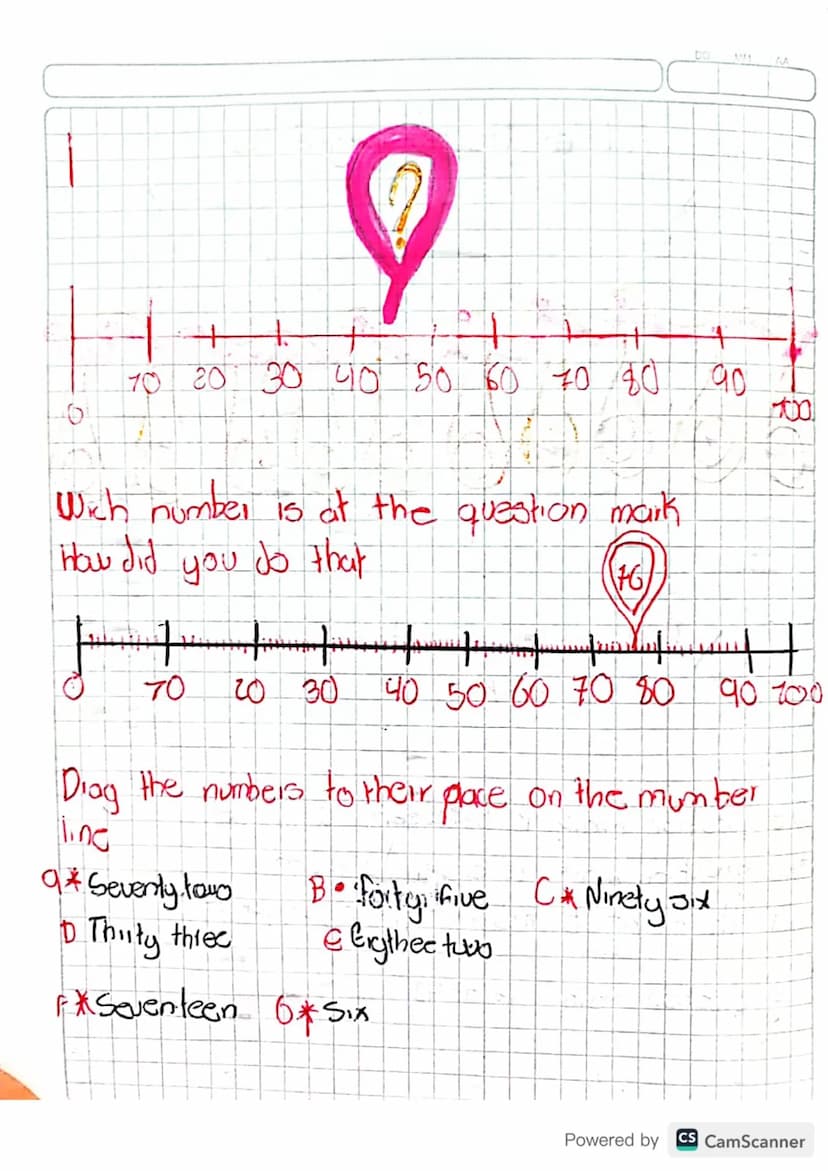 DD MM AA
?
0 10 20 30 40 50 60 70 80 90 100
Wich number is at the question mark
How did you do that
76
0 10 20 30 40 50 60 70 80 90 100
Drag the numbers to their place on the mumber
line
a* Seventy towo B• forty five C* Ninety six
D Thirty three
F* Seventeen G* Six
Powered by CS CamScanner